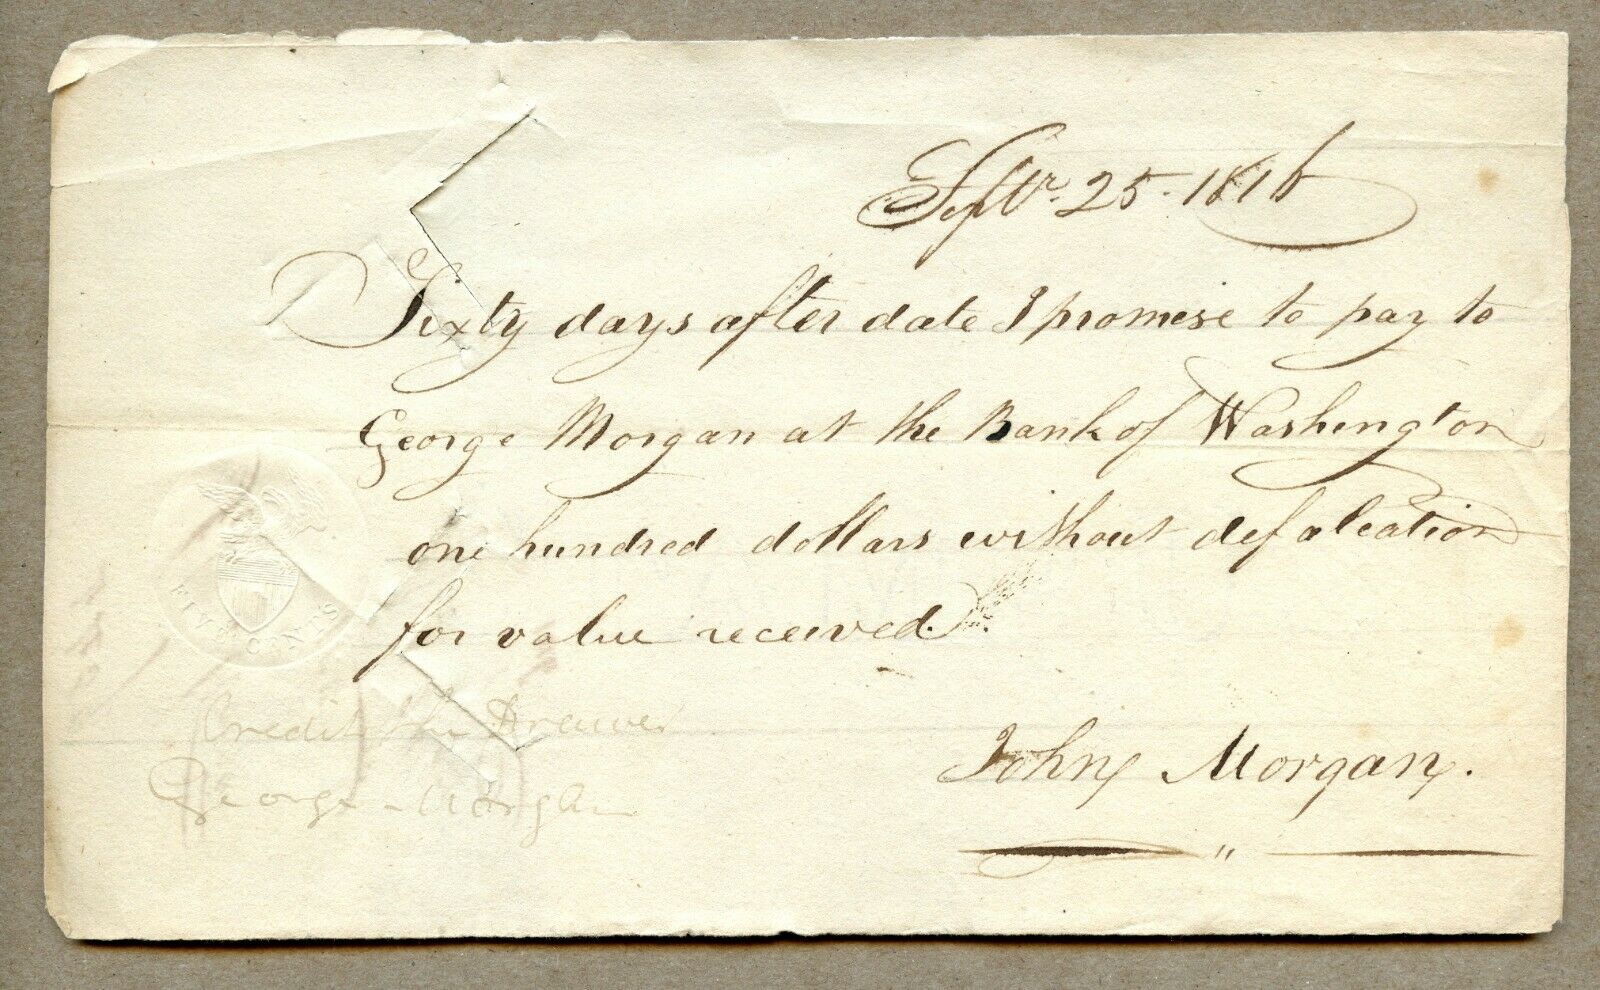 Septr. 25. 1816
Sixty days after date I promise to pay to
George Morgan at the Bank of Washington
one hundred dollars without defalcation
for value received.
FIVE CENTS
Credit the Drawer
George Morgan
John Morgan.